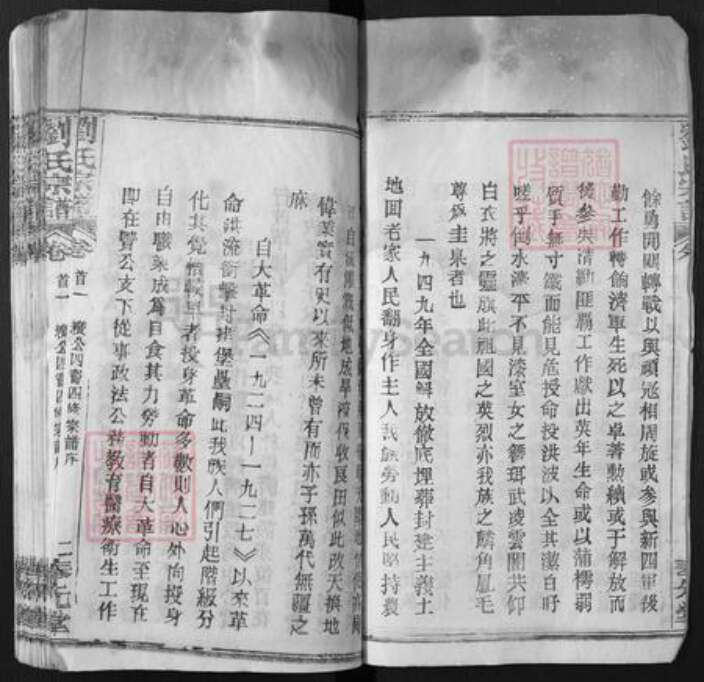 餘勇開闢轉戰以與頑冠相周旋或參與新四軍後
勤工作轉餉濟軍生死以之卓著勳績或于解放而
後參與清勦匪霸工作獻出英年生命或以蒲樗弱
質手無寸鐵而能見危授命投洪波以全其潔白吁
嗟乎倒水濂平不見漆室女之簪珥武凌雲開共仰
白衣將之靈旗此祖國之英烈亦我族之麟角鳳毛
尊為圭臬者也
一九四九年全國解放徹底埋葬封建主義土
地回老家人民翻身作主人我族勞動人民堅持農
收良田似此改天換地
偉業實有史以來所未曾有而亦子孫萬代無疆之
麻
自大革命《一九二四—一九二七》以來革
命洪流衝擊封建堡壘嗣此我族人們引起階級分
化其覺悟較早者投身革命多數則人心外向投身
自由職業成為自食其力勞動者自大革命至現在
即在贊公支下從事政法公務教育醫療衛生工作
劉氏宗譜 卷首一 四修宗譜序 二
劉氏宗譜 卷首一
FamilySearch